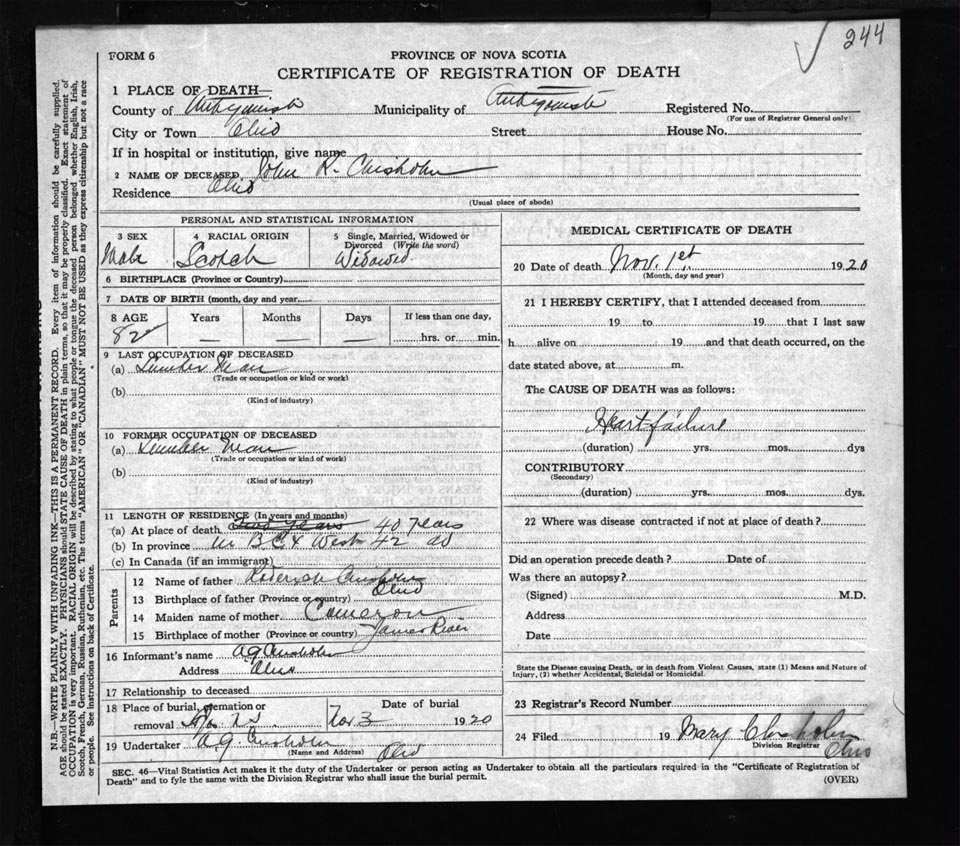 244
FORM 6
PROVINCE OF NOVA SCOTIA
CERTIFICATE OF REGISTRATION OF DEATH
1 PLACE OF DEATH
County of Antigonish Municipality of Antigonish Registered No.
(For use of Registrar General only)
City or Town Ohio Street House No.
If in hospital or institution, give name
2 NAME OF DECEASED John R. Chisholm
Residence Ohio
(Usual place of abode)
PERSONAL AND STATISTICAL INFORMATION
3 SEX 4 RACIAL ORIGIN 5 Single, Married, Widowed or Divorced (Write the word)
Male Scotch Widowed
6 BIRTHPLACE (Province or Country)
7 DATE OF BIRTH (month, day and year
8 AGE Years Months Days If less than one day,
82 — — — hrs. or min.
9 LAST OCCUPATION OF DECEASED
(a) Lumber Man
(Trade or occupation or kind or work)
(b)
(Kind of industry)
10 FORMER OCCUPATION OF DECEASED
(a) Lumber Man
(Trade or occupation or kind of work)
(b)
(Kind of industry)
11 LENGTH OF RESIDENCE (In years and months)
(a) At place of death 40 years
(b) In province in B.C. & West 42
(c) In Canada (if an immigrant)
Parents
12 Name of father Roderick Chisholm
13 Birthplace of father (Province or country) Ohio
14 Maiden name of mother Cameron
15 Birthplace of mother (Province or country) James River
16 Informant's name A G Chisholm
Address Ohio
17 Relationship to deceased
18 Place of burial, cremation or removal N.S. Nov 3 Date of burial 1920
19 Undertaker A. G Chisholm Ohio
(Name and Address)
MEDICAL CERTIFICATE OF DEATH
20 Date of death Nov. 1st 1920
(Month, day and year)
21 I HEREBY CERTIFY, that I attended deceased from
19 to 19 that I last saw
h alive on 19 and that death occurred, on the
date stated above, at m.
The CAUSE OF DEATH was as follows:
Heart failure
(duration) yrs. mos. dys
CONTRIBUTORY
(Secondary)
(duration) yrs. mos. dys.
22 Where was disease contracted if not at place of death?
Did an operation precede death? Date of
Was there an autopsy?
(Signed) M.D.
Address
Date
State the Disease causing Death, or in death from Violent Causes, state (1) Means and Nature of
Injury, (2) whether Accidental, Suicidal or Homicidal.
23 Registrar's Record Number
24 Filed 19 Mary Chisholm
Division Registrar
Ohio
SEC. 46—Vital Statistics Act makes it the duty of the Undertaker or person acting as Undertaker to obtain all the particulars required in the "Certificate of Registration of
Death" and to fyle the same with the Division Registrar who shall issue the burial permit. (OVER)
N.B.—WRITE PLAINLY WITH UNFADING INK—THIS IS A PERMANENT RECORD. Every item of information should be carefully supplied.
AGE should be stated EXACTLY. PHYSICIANS should STATE CAUSE OF DEATH in plain terms, so that it may be properly classified. Exact statement of
OCCUPATION is very important. RACIAL ORIGIN will be described by stating to what people or tongue the deceased person belonged whether English, Irish,
Scotch, French, German, Russian, Ruthenian, etc. The terms "AMERICAN" OR "CANADIAN" MUST NOT BE USED as they express citizenship but not a race
or people. See instructions on back of Certificate.